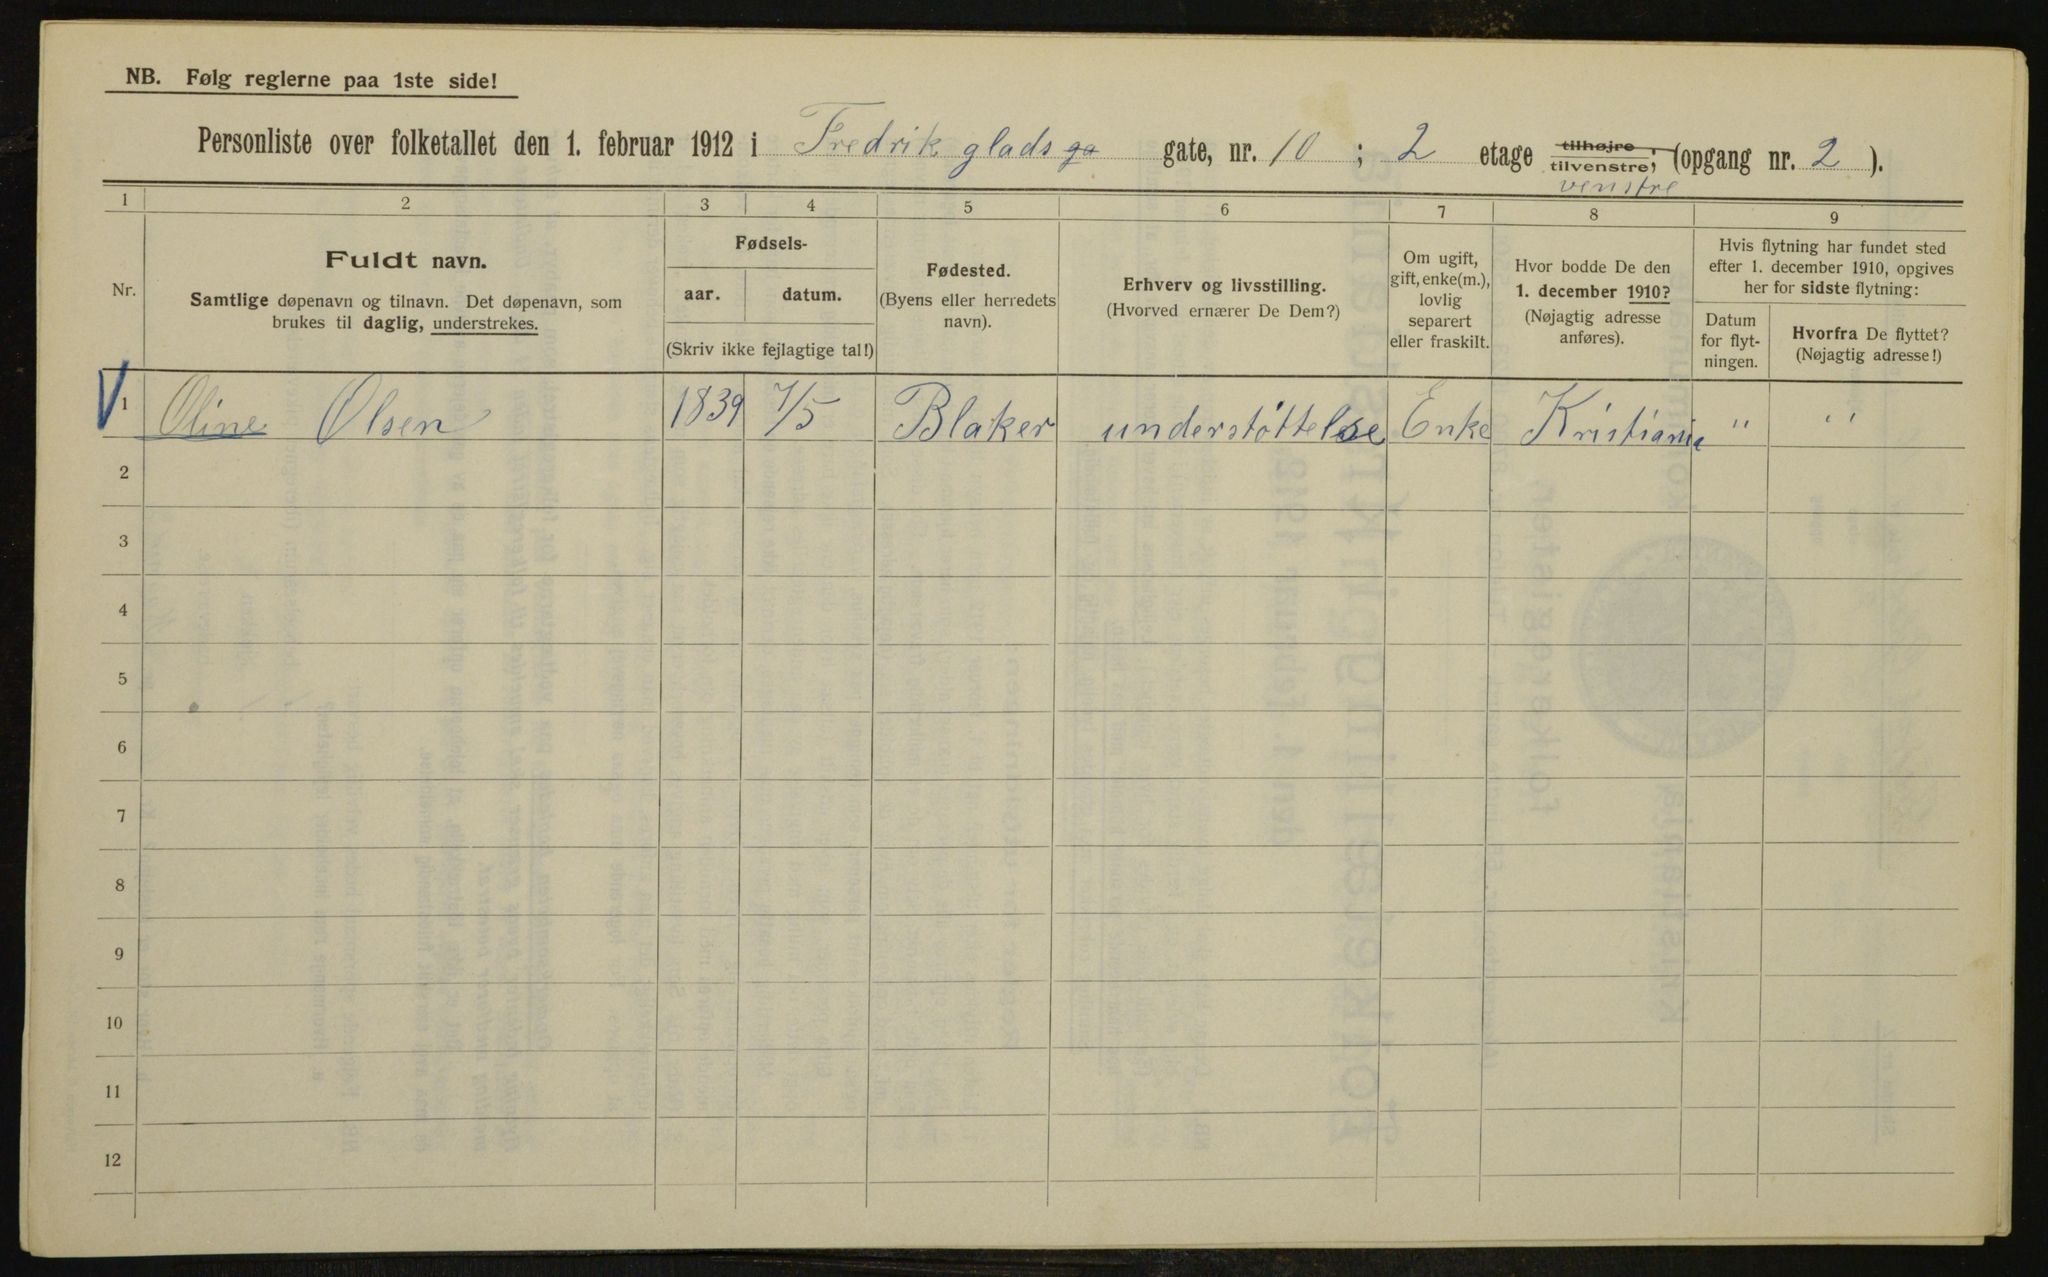 NB. Følg reglerne paa 1ste side!
Personliste over folketallet den 1. februar 1912 i Fredrik glads ga gate, nr. 10 ; 2 etage tilhøjre / tilvenstre; (opgang nr. 2 ).
venstre
1 2 3 4 5 6 7 8 9
Nr.
Fuldt navn.
Samtlige døpenavn og tilnavn. Det døpenavn, som
brukes til daglig, understrekes.
Fødsels-
aar. datum.
(Skriv ikke fejlagtige tal!)
Fødested.
(Byens eller herredets
navn).
Erhverv og livsstilling.
(Hvorved ernærer De Dem?)
Om ugift,
gift, enke(m.),
lovlig
separert
eller fraskilt.
Hvor bodde De den
1. december 1910?
(Nøjagtig adresse
anføres).
Hvis flytning har fundet sted
efter 1. december 1910, opgives
her for sidste flytning:
Datum
for flyt-
ningen.
Hvorfra De flyttet?
(Nøjagtig adresse!)
1 Oline Olsen 1839 7/5 Blaker understøttelse Enke Kristiania " "
2
3
4
5
6
7
8
9
10
11
12